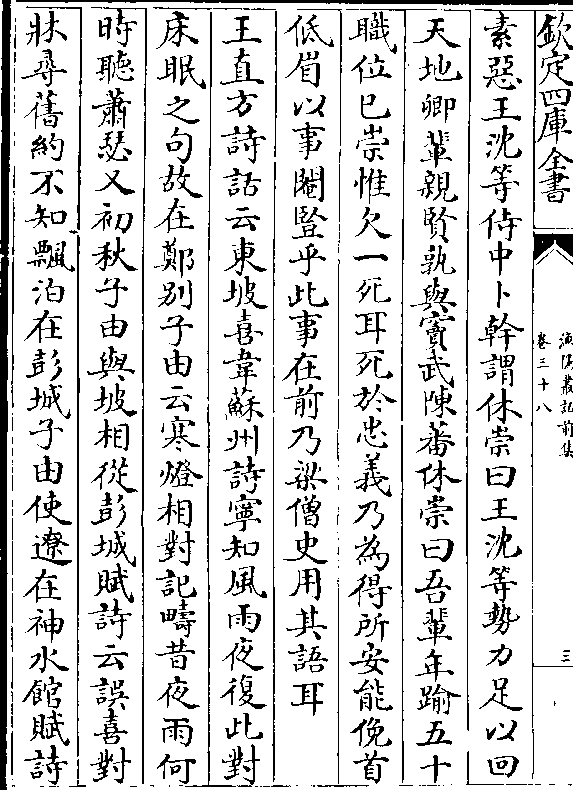 欽定四庫全書
漁隱叢話前集
卷三十八
三
素惡王沈等侍中卜幹謂休崇曰王沈等勢力足以回
天地卿輩親賢孰與竇武陳蕃休崇曰吾輩年踰五十
職位已崇惟欠一死耳死於忠義乃為得所安能俛首
低眉以事閹豎乎此事在前乃梁僧史用其語耳
王直方詩話云東坡喜韋蘇州詩寧知風雨夜復此對
床眠之句故在鄭别子由云寒燈相對記疇昔夜雨何
時聽蕭瑟又初秋子由與坡相從彭城賦詩云誤喜對
牀尋舊約不知飄泊在彭城子由使遼在神水館賦詩